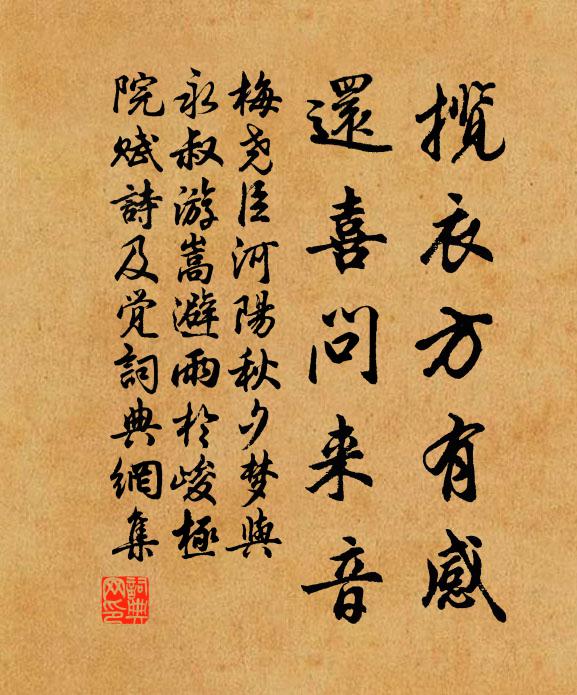 攬衣方有感
還喜問来音
梅堯臣河陽秋夕梦與
永叔游嵩避雨於峻極
院赋詩及觉詞典網集
詞典网印